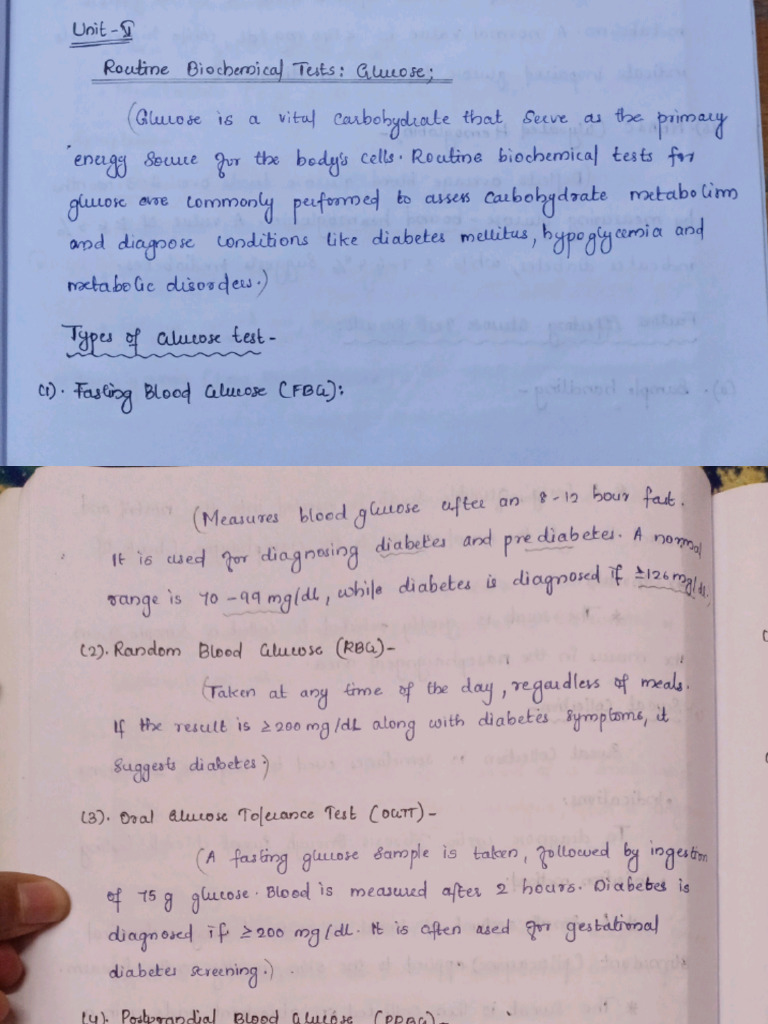 Unit-V
Routine Biochemical Tests: Glucose;
(Glucose is a vital carbohydrate that serve as the primary
energy source for the body's cells. Routine biochemical tests for
glucose are commonly performed to assess carbohydrate metabolism
and diagnose conditions like diabetes mellitus, hypoglycemia and
metabolic disorders.)
Types of Glucose test-
(1). Fasting Blood Glucose (FBG):
(Measures blood glucose after an 8-12 hour fast.
It is used for diagnosing diabetes and prediabetes. A normal
range is 70-99 mg/dL, while diabetes is diagnosed if ≥126 mg/dL.
(2). Random Blood Glucose (RBG)-
(Taken at any time of the day, regardless of meals.
If the result is ≥200 mg/dL along with diabetes symptoms, it
suggests diabetes.)
(3). Oral Glucose Tolerance Test (OGTT)-
(A fasting glucose sample is taken, followed by ingestion
of 75 g glucose. Blood is measured after 2 hours. Diabetes is
diagnosed if ≥200 mg/dL. It is often used for gestational
diabetes screening.)
(4). Postprandial Blood Glucose (PPBG)-